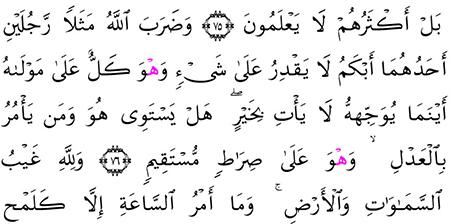 بَلْ أَكْثَرُهُمْ لَا يَعْلَمُونَ ﴿٧٥﴾ وَضَرَبَ ٱللَّهُ مَثَلًا رَّجُلَيْنِ
أَحَدُهُمَآ أَبْكَمُ لَا يَقْدِرُ عَلَىٰ شَىْءٍ وَهْوَ كَلٌّ عَلَىٰ مَوْلَىٰهُ
أَيْنَمَا يُوَجِّههُّ لَا يَأْتِ بِخَيْرٍ ۖ هَلْ يَسْتَوِى هُوَ وَمَن يَأْمُرُ
بِٱلْعَدْلِ ۙ وَهْوَ عَلَىٰ صِرَاطٍ مُّسْتَقِيمٍ ﴿٧٦﴾ وَلِلَّهِ غَيْبُ
ٱلسَّمَـٰوَٰتِ وَٱلْأَرْضِ ۚ وَمَآ أَمْرُ ٱلسَّاعَةِ إِلَّا كَلَمْحِ